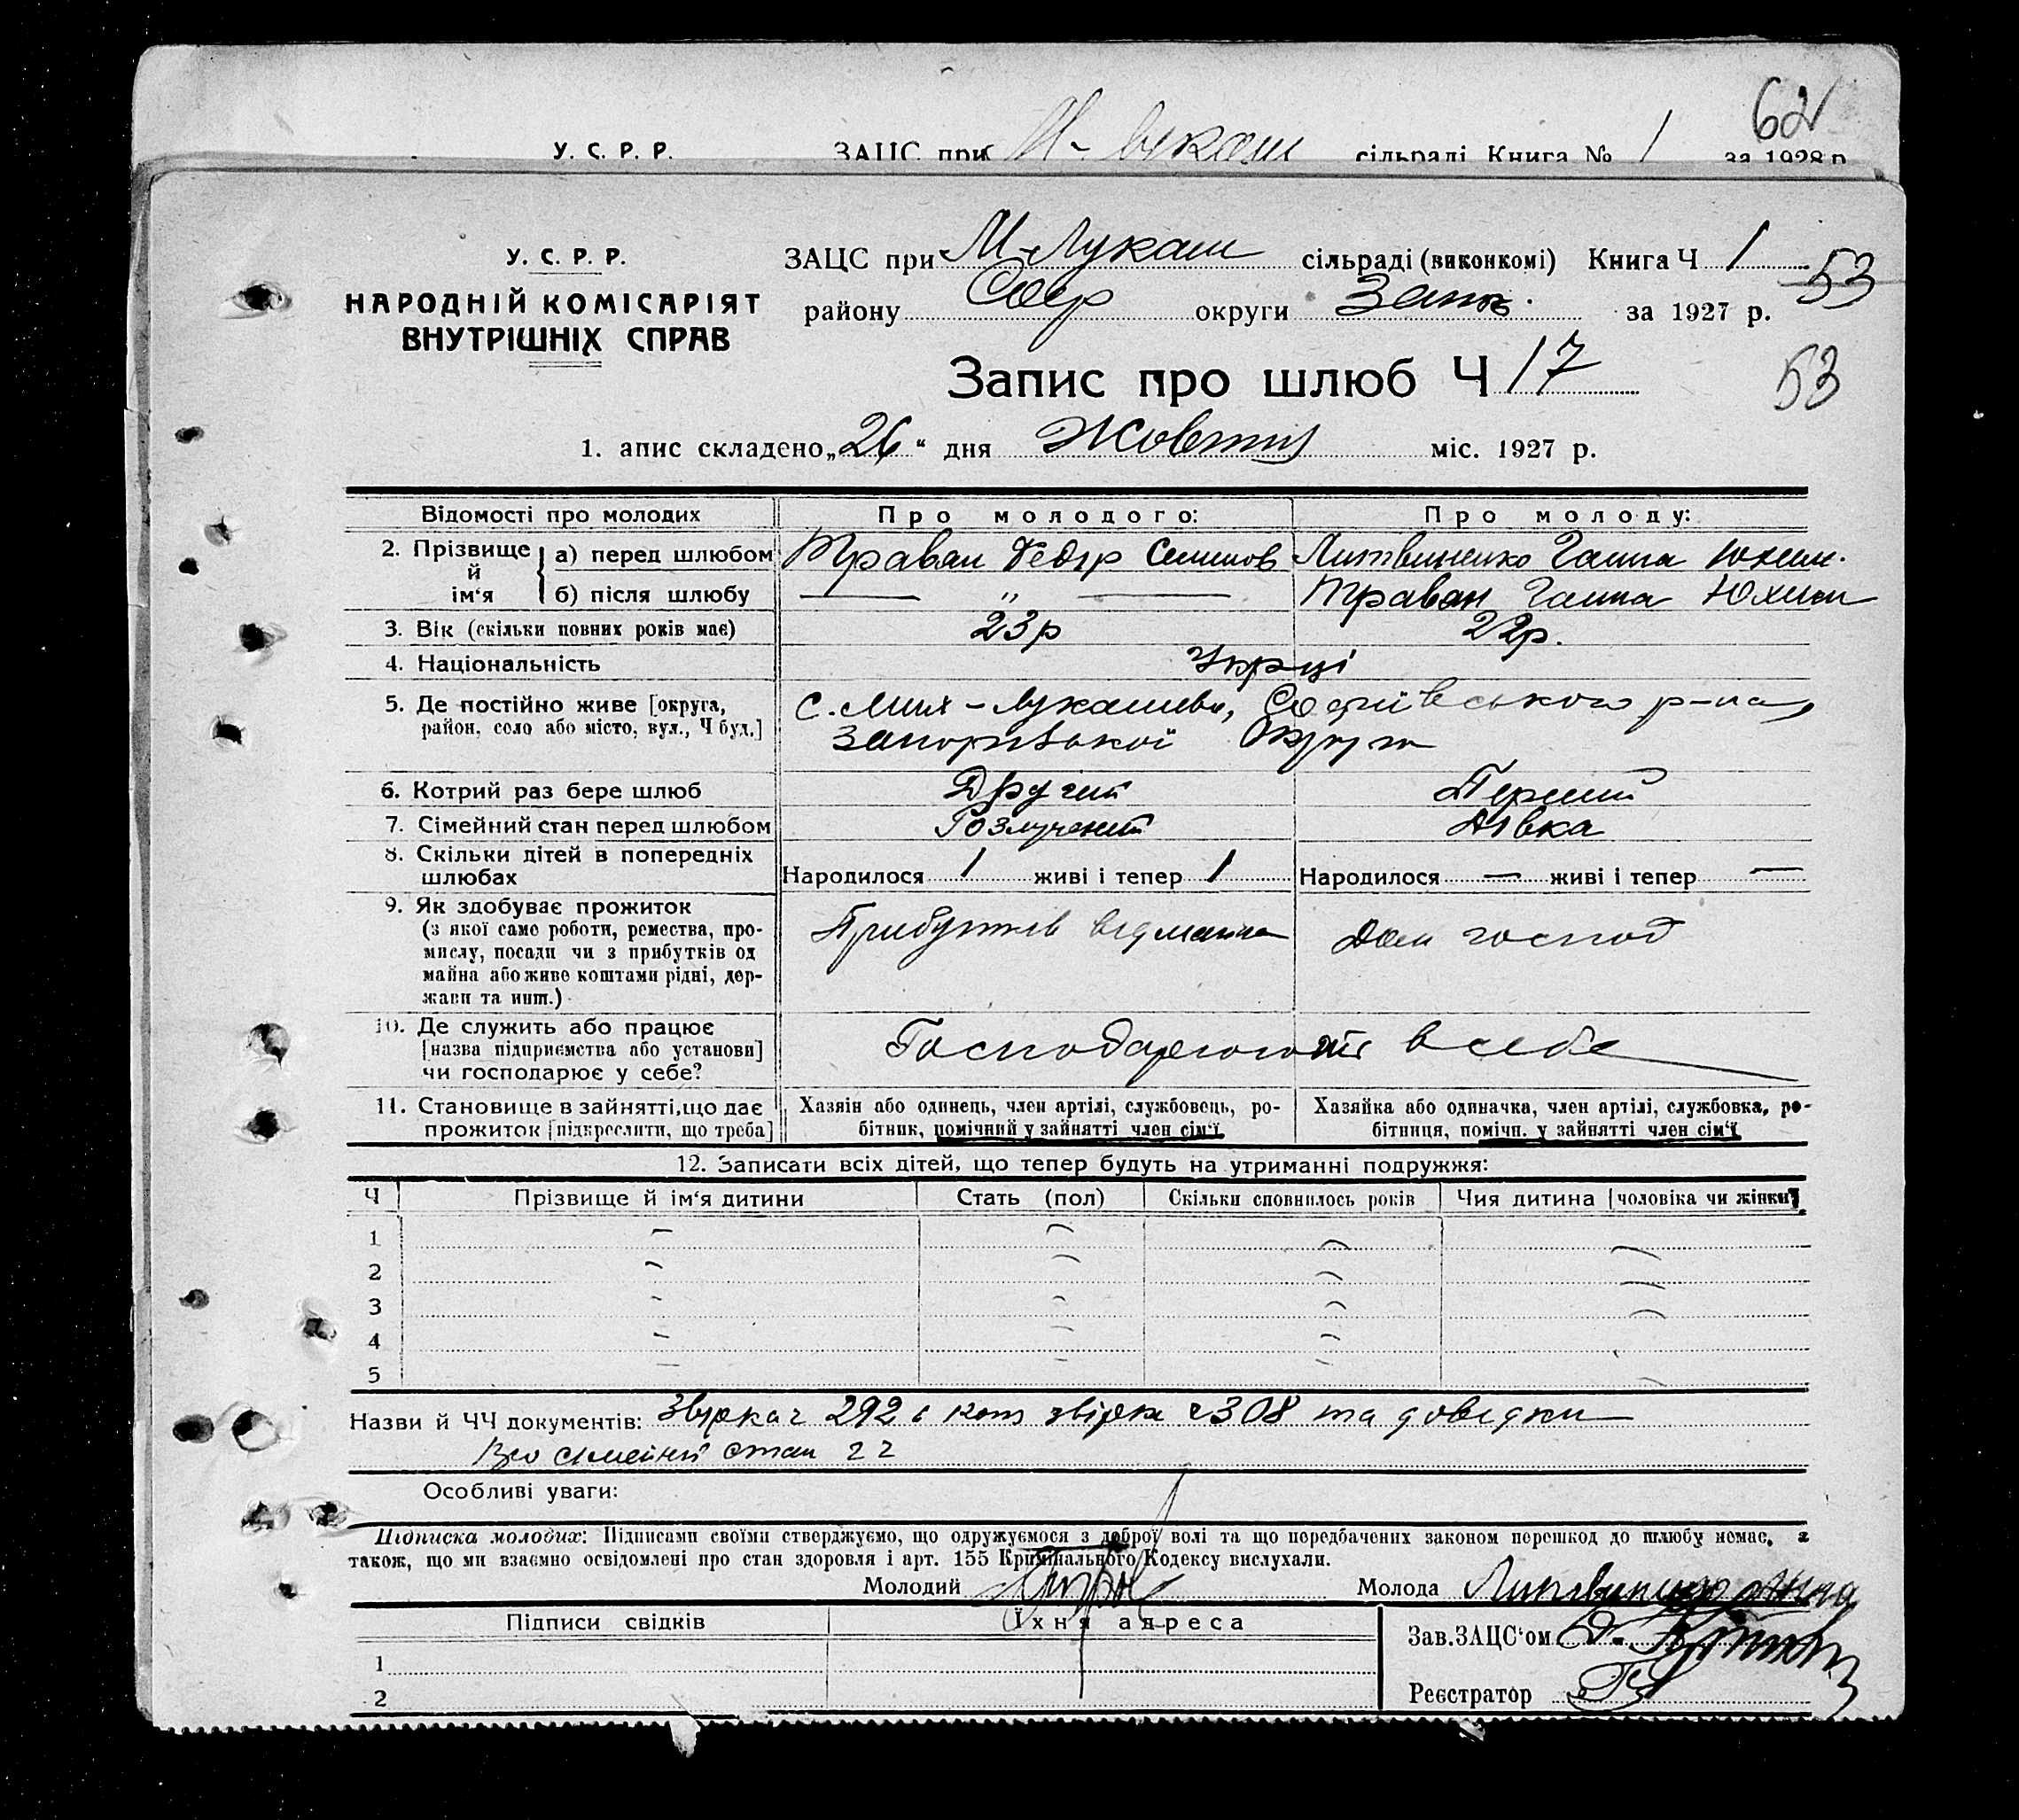 62
У. С. Р. Р. ЗАЦС при М- Лукаш сільраді Книга № 1 за 1928 р.
У. С. Р. Р.
НАРОДНІЙ КОМІСАРІЯТ
ВНУТРІШНІХ СПРАВ
ЗАЦС при М-Лукаш сільраді (виконкомі) Книга Ч 1
53
району Соф округи Запоր за 1927 р.
Запис про шлюб Ч 17
53
1. апис складено „26“ дня Жовтня міс. 1927 р.
Відомості про молодих Про молодого: Про молоду:
2. Прізвище й ім‘я
а) перед шлюбом Траван Федір Семенов Литвиненко Ганна Юхим.
б) після шлюбу — „ — Траван Ганна Юхим
3. Вік (скільки повних років має) 23р 22р.
4. Національність Укрці
5. Де постійно живе [округа, с. Мих-Лукашеве, Софіївського р-на,
район, село або місто, вул., Ч буд.] Запорізької Округи
6. Котрий раз бере шлюб Другий Перший
7. Сімейний стан перед шлюбом Розлучений Дівка
8. Скільки дітей в попередніх
шлюбах Народилося 1 живі і тепер 1 Народилося — живі і тепер —
9. Як здобуває прожиток
(з якої само роботи, ремества, про- Прибутків від майна Дом господ
мислу, посади чи з прибутків од
майна або живе коштами рідні, дер-
жави та инш.)
10. Де служить або працює
[назва підприємства або установи] Господарюють в себе
чи господарює у себе?
11. Становище в зайнятті, що дає Хазяїн або одинець, член артілі, службовець, ро- Хазяйка або одиначка, член артілі, службовка, ро-
прожиток [підкреслити, що треба] бітник, помічний у зайнятті член сім‘ї бітниця, помічн. у зайнятті член сім‘ї
12. Записати всіх дітей, що тепер будуть на утриманні подружжя:
Ч Прізвище й ім‘я дитини Стать (пол) Скільки сповнилось років Чия дитина [чоловіка чи жінки]
1 — — — —
2 — — — —
3 — — — —
4 — — —
5 — — — —
Назви й ЧЧ документів: Звірка ч 292 звірка ч 308 та довідки
сімейний стан
Особливі уваги:
Підписка молодих: Підписами своїми стверджуємо, що одружуємося з доброї волі та що передбачених законом перешкод до шлюбу немає, а
також, що ми взаємно освідомлені про стан здоровля і арт. 155 Кримінального Кодексу вислухали.
Молодий Молода Литвиненко
Підписи свідків Їхня адреса
Зав. ЗАЦС‘ом
1
Реєстратор
2